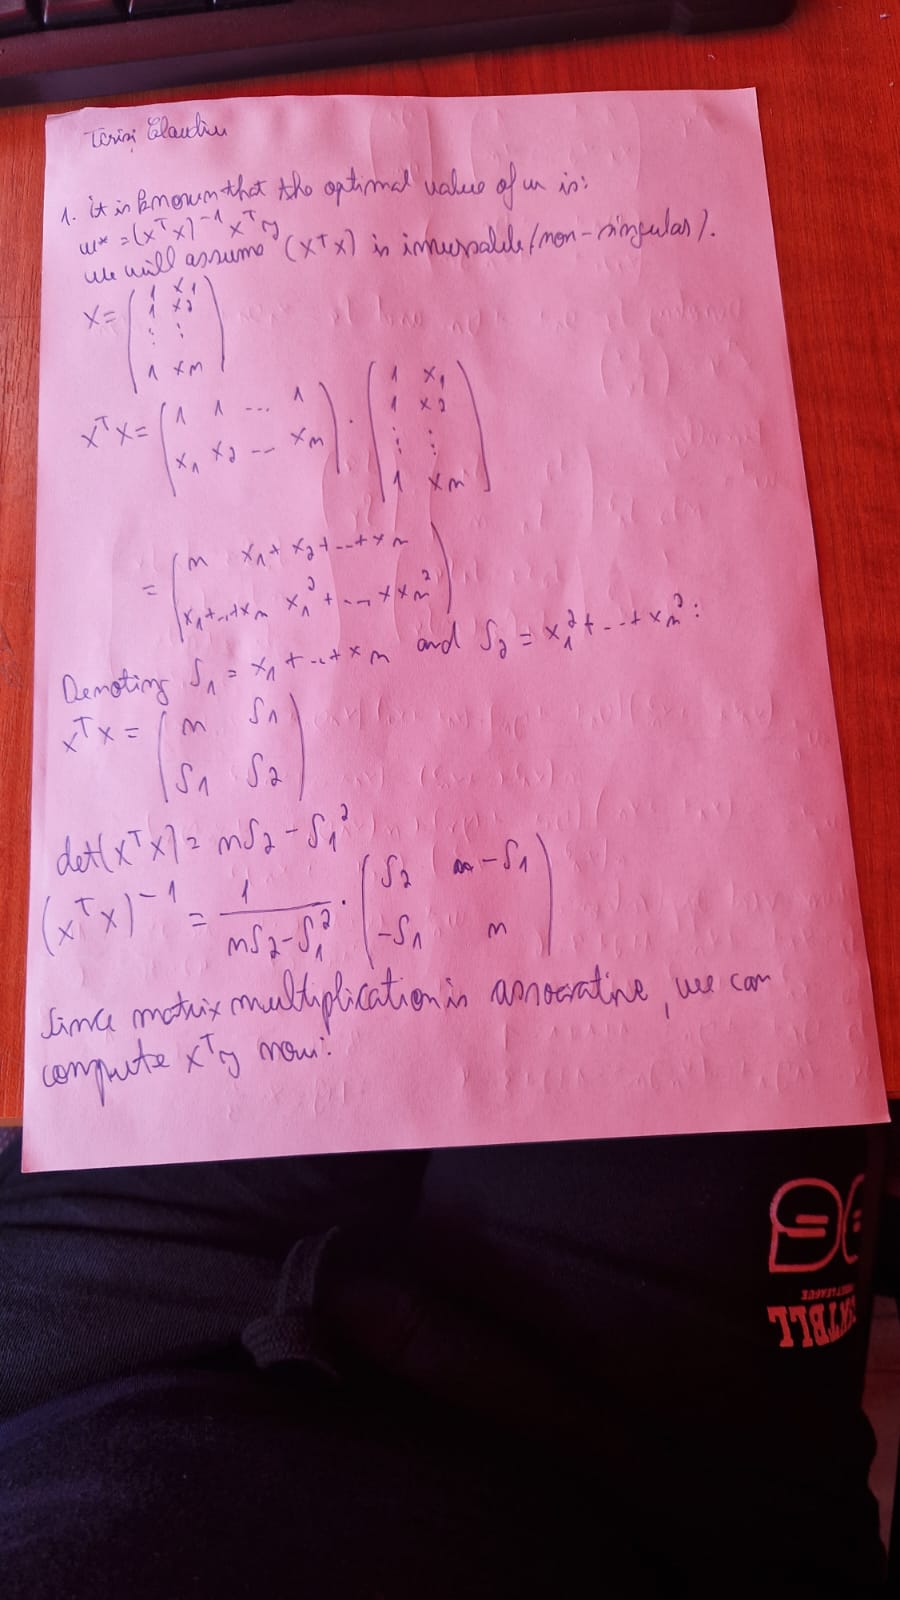 1. it is known that the optimal value of w is:
w* = (x^T x)^-1 x^T y
we will assume (x^T x) is inversable (non-singular).
X = ( 1 x1
1 x2
⋮ ⋮
1 xn )
x^T x = ( 1 1 ... 1
x1 x2 ... xn ) · ( 1 x1
1 x2
⋮ ⋮
1 xn )
= ( n x1 + x2 + ... + xn
x1 + ... + xn x1^2 + ... + xn^2 )
Denoting S1 = x1 + ... + xn and S2 = x1^2 + ... + xn^2 :
x^T x = ( n S1
S1 S2 )
det(x^T x) = nS2 - S1^2
(x^T x)^-1 = 1 / (nS2 - S1^2) · ( S2 -S1
-S1 n )
Since matrix multiplication is associative, we can
compute x^T y now: